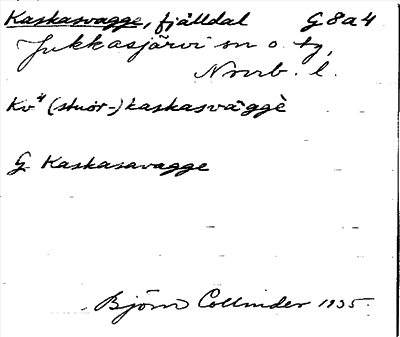 Kaskasvagge, fjälldal G8a4
Jukkasjärvi sn o. tg,
Norrb. l.
Kv⁴ (stuor-)kaskasvàggè
G Kaskasavagge
Björn Collinder 1935